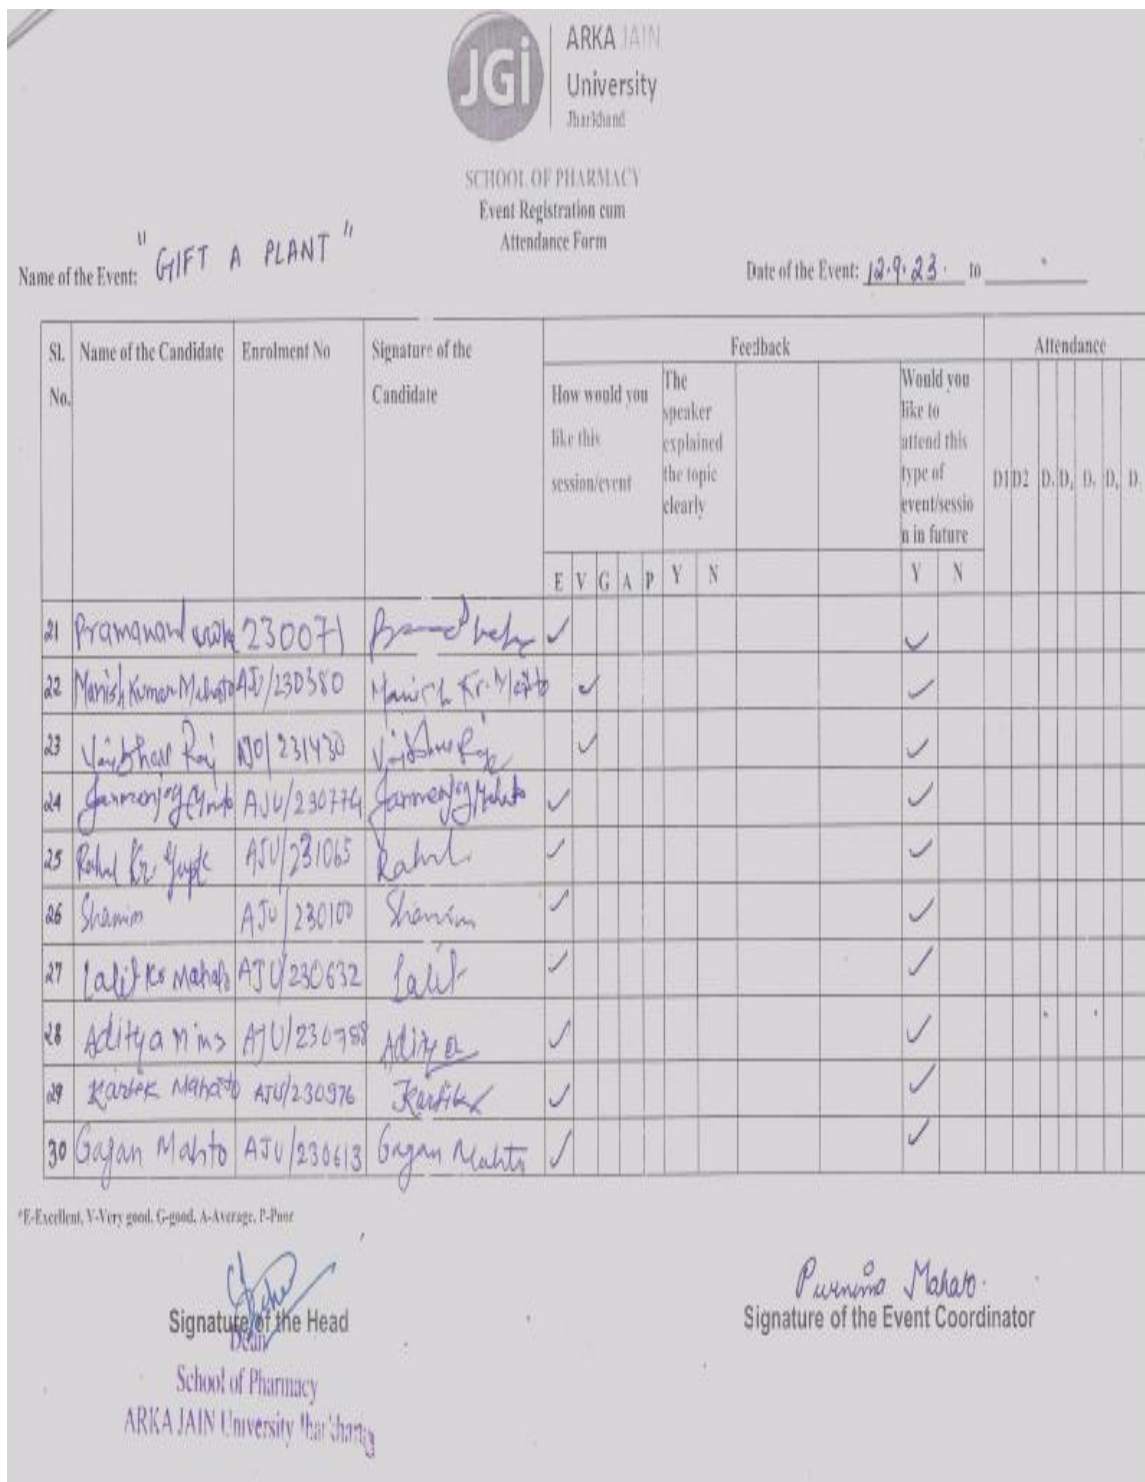 JGi
ARKA JAIN
University
Jharkhand
SCHOOL OF PHARMACY
Event Registration cum
Attendance Form
Name of the Event: "GIFT A PLANT"
Date of the Event: 12.9.23. to
Sl. No. Name of the Candidate Enrolment No Signature of the Candidate Feedback Attendance
How would you like this session/event The speaker explained the topic clearly Would you like to attend this type of event/session in future D1 D2 D. D. D. D. D.
E V G A P Y N Y N
21 Pramanand 230071
22 Manish Kumar Mahato AJU/230380 Manish Kr. Mahto
23 Vaibhav Raj 231430 Vaibhav Raj
24 AJU/230774
25 Rahul Kr. Gupta AJU/231065 Rahul
26 Shamim AJU/230100 Shamim
27 Lalit Kr Mahato AJU/230632 Lalit
28 Aditya AJU/230788 Aditya
29 Kartik Mahato AJU/230976 Kartik
30 Gagan Mahto AJU/230613 Gagan Mahto
*E-Excellent, V-Very good, G-good, A-Average, P-Poor
Signature of the Head
Dean
School of Pharmacy
ARKA JAIN University Jharkhand
Purnima Mahato.
Signature of the Event Coordinator